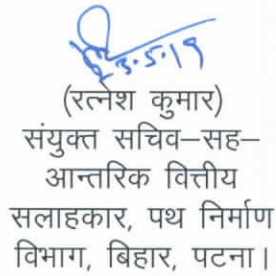 23.5.19
(रत्नेश कुमार)
संयुक्त सचिव–सह–
आन्तरिक वित्तीय
सलाहकार, पथ निर्माण
विभाग, बिहार, पटना।